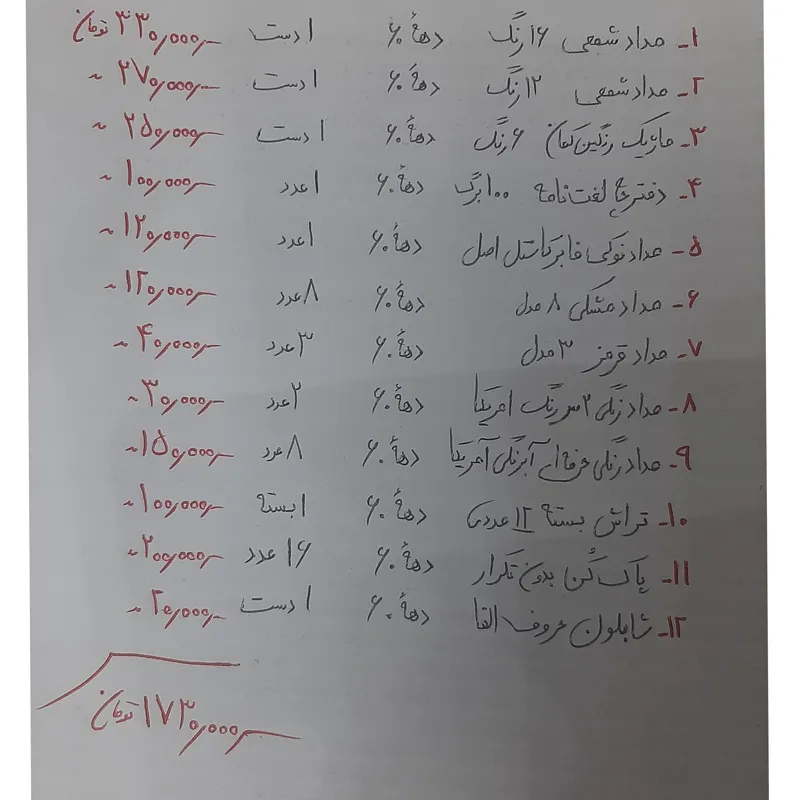 ۱- مداد شمعی ۱۶ رنگ دههٔ ۶۰ ۱ دست ۳۳۰,۰۰۰ تومان
۲- مداد شمعی ۱۲ رنگ دههٔ ۶۰ ۱ دست ۲۷۰,۰۰۰ ~
۳- ماژیک رنگین کمان ۶ رنگ دههٔ ۶۰ ۱ دست ۲۵۰,۰۰۰ ~
۴- دفترچه لغت نامه ۱۰۰ برگ دههٔ ۶۰ ۱ عدد ۱۰۰,۰۰۰ ~
۵- مداد نوکی فابرکاستل اصل دههٔ ۶۰ ۱ عدد ۱۲۰,۰۰۰ ~
۶- مداد مشکی ۸ مدل دههٔ ۶۰ ۸ عدد ۱۲۰,۰۰۰ ~
۷- مداد قرمز ۳ مدل دههٔ ۶۰ ۳ عدد ۴۰,۰۰۰ ~
۸- مداد رنگی ۲ سر رنگ امریکا دههٔ ۶۰ ۲ عدد ۳۰,۰۰۰ ~
۹- مداد رنگی حرفه ای آبرنگی آمریکا دههٔ ۶۰ ۸ عدد ۱۵۰,۰۰۰ ~
۱۰- تراش بسته ۱۲ عددی دههٔ ۶۰ ۱ بسته ۱۰۰,۰۰۰ ~
۱۱- پاک کُن بدون تکرار دههٔ ۶۰ ۱۶ عدد ۲۰۰,۰۰۰ ~
۱۲- شابلون حروف الفبا دههٔ ۶۰ ۱ دست ۲۰,۰۰۰ ~
۱۷۳۰,۰۰۰ تومان